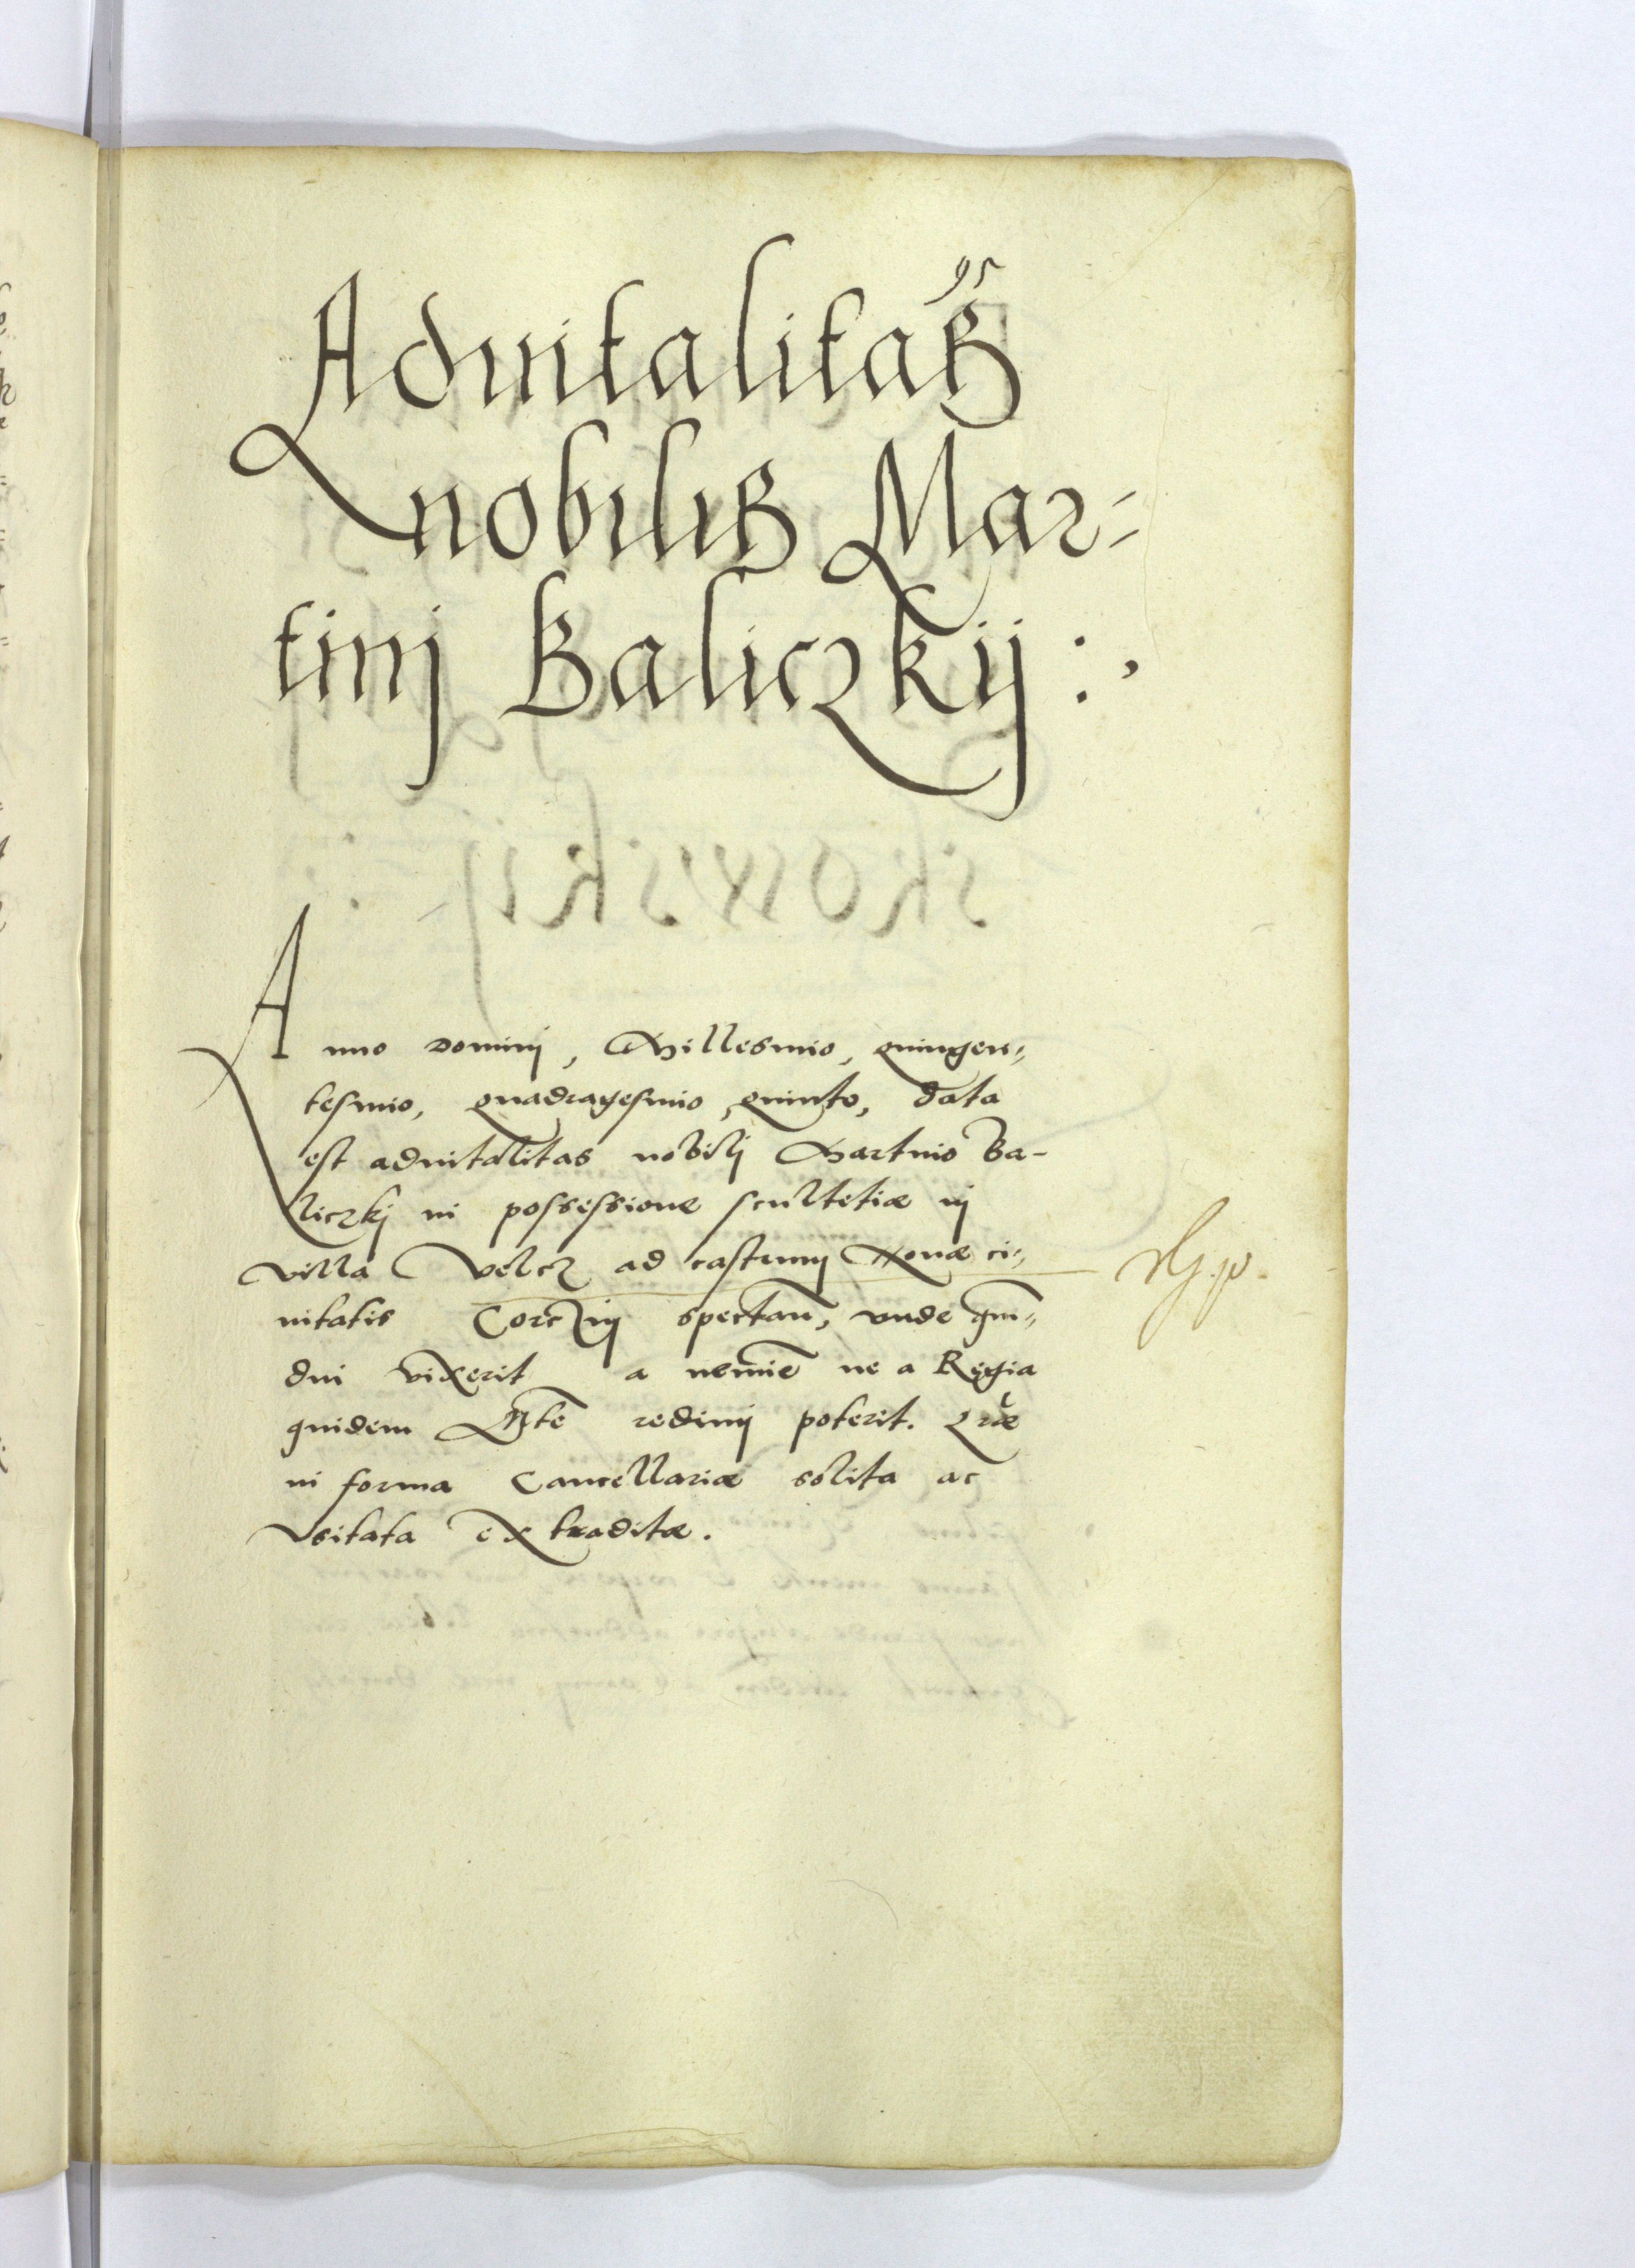 95
Advitalitas
nobilis Mar=
tinj Baliczkij :,
Anno Dominj, Millesimo, quingen=
tesimo, quadragesimo, quinto, data
est advitalitas nobilj Martino Ba-
liczkj in possessione scultetiæ in
villa Velcz ad castrum Novæ ci=
vitatis Corczin spectan, unde quin=
diu vixerit a nemine ne a Regia
quidem Mte redimj poterit. Lræ
in forma Cancellariæ solita ac
vsitata extraditæ.